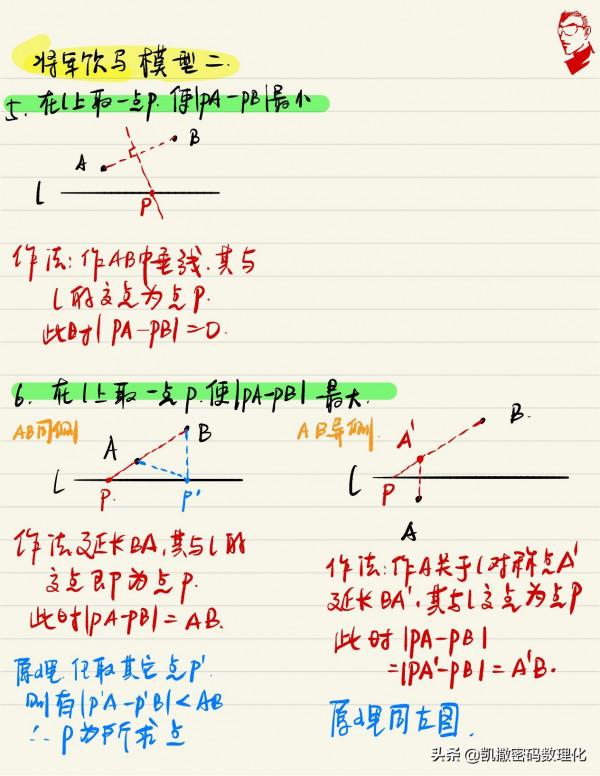 将军饮马模型二.
5. 在l上取一点P.使|PA-PB|最小
A
B
l
P
作法:作AB中垂线.其与
l的交点为点P.
此时|PA-PB|=0.
6. 在l上取一点P.使|PA-PB|最大.
AB同侧
A
B
l
P.
P'
作法:延长BA,其与l的
交点即P为点P.
此时|PA-PB|=AB.
原理.任取其它点P'
则有|P'A-P'B|<AB
∴P为所求点
AB异侧.
A'
B.
l
P
A
作法:作A关于l对称点A'
延长BA',其与l交点为点P
此时|PA-PB|
=|PA'-PB|=A'B.
原理同左图.
头条 @凯撒密码数理化